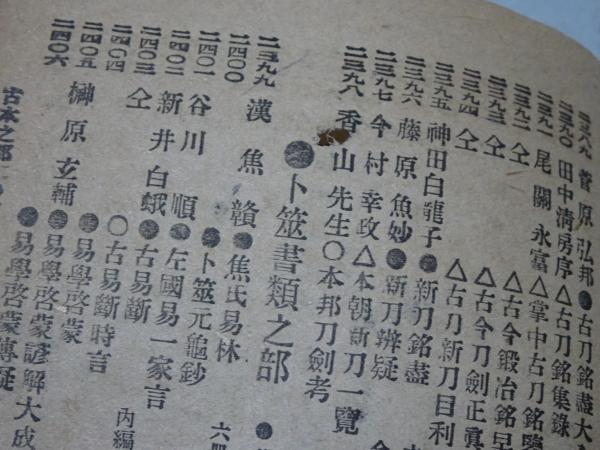 二三八九 菅原弘邦 ●古刀銘盡大
二三九〇 田中淸房序 △古刀銘集錄
二三九一 尾關永富 △掌中古刀銘鑑
二三九二 仝 △古今鍛冶銘早
二三九三 仝 △古今刀劍正眞
二三九四 仝 △古刀新刀目利
二三九五 神田白龍子 ●新刀銘盡
二三九六 藤原魚妙 ●新刀辨疑
二三九七 今村幸政 △本朝新刀一覽
二三九八 香山先生 〇本邦刀劍考
●卜筮書類之部
二三九九 漢焦贛 ●焦氏易林
二四〇〇 谷川順 ●卜筮元龜鈔 六冊
二四〇一 新井白蛾 ●左國易一家言
二四〇二 仝 ●古易斷 內編
二四〇三 〇古易斷時言
二四〇四 榊原玄輔 ●易學啓蒙
二四〇五 ●易學啓蒙諺解大成
二四〇六 ●易學啓蒙傳疑
古本之部